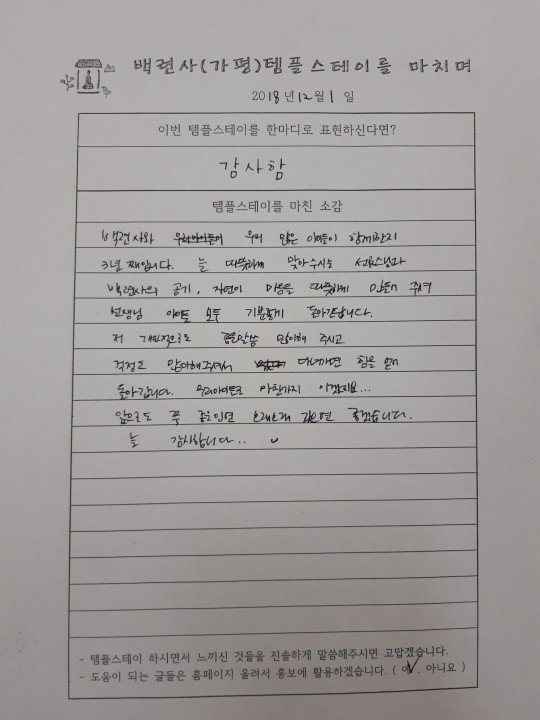 백련사(가평)템플스테이를 마치며
2018년 12월 1일
이번 템플스테이를 한마디로 표현하신다면?
감사함
템플스테이를 마친 소감
백련사와 우리 많은 아이들이 함께한지
3년 째입니다. 늘 따뜻하게 맞아주시는 선류스님과
백련사의 공기, 자연이 마음을 따뜻하게 만들어 줘서
선생님 아이들 모두 기분좋게 돌아갑니다.
저 개인적으로도 좋은말씀 많이해 주시고
걱정도 많이해주셔서 다녀가면 힘을 얻어
돌아갑니다. 우리아이들도 마찬가지 이겠지요...
앞으로도 쭉 좋은인연 오래오래 가면 좋겠습니다.
늘 감사합니다..
- 템플스테이 하시면서 느끼신 것들을 진솔하게 말씀해주시면 고맙겠습니다.
- 도움이 되는 글들은 홈페이지 올려서 홍보에 활용하겠습니다. ( 예 . 아니요 )